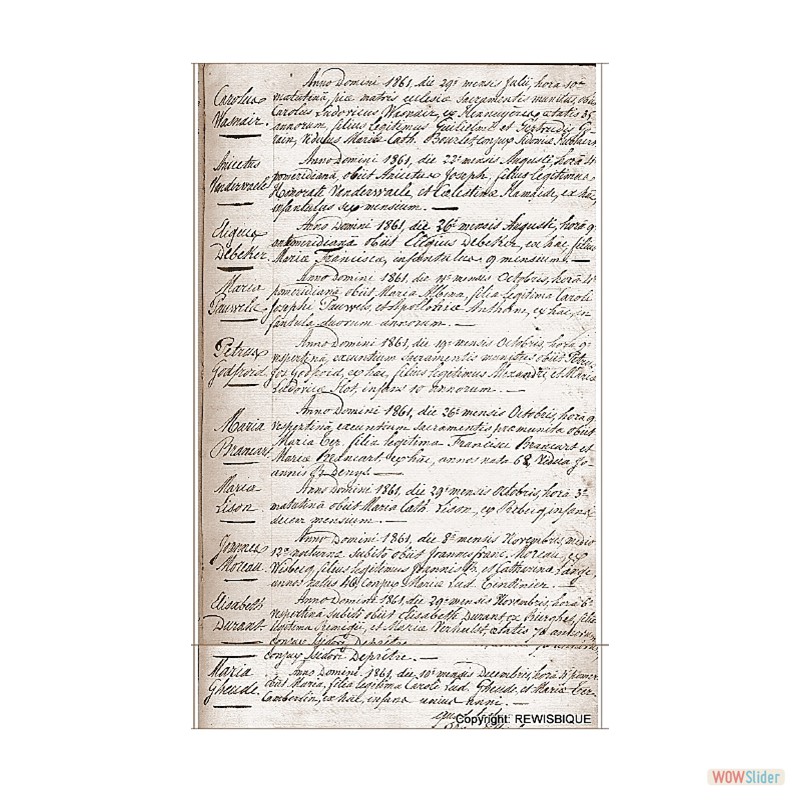 Carolus Wasnair.
Anno Domini 1861, die 29ª mensis Julii, hora 10ª
matutinâ, piæ matris ecclesiæ Sacramentis munitus, obiit
Carolus Ludovicus Wasnair, ex ætatis 35
annorum, filius legitimus et Gertrudis
viduus Mariæ Cath. Bourlet, conjux
Anicetus Vanderwaele
Anno Domini 1861, die 22ª mensis Augusti, horâ 4ª
pomeridianâ, obiit Anicetus Joseph, filius legitimus
Honorati Vanderwaele, et Celestinæ Hamaide, ex hac,
infantulus sex mensium. —
Eligius Debeker.
Anno Domini 1861, die 26ª mensis Augusti, horâ 9ª
antemeridianâ obiit Eligius Debeker, ex hac, filius
Mariæ Franciscæ, infantulus 9 mensium. —
Maria Pauwels.
Anno Domini 1861, die mensis Octobris, horâ 4ª
pomeridianâ, obiit Maria Albina, filia legitima Caroli
Josephi Pauwels, et Apoloniæ Anthone, ex hac, in-
fantula duorum annorum. —
Petrus Godfroid.
Anno Domini 1861, die 19ª mensis Octobris, horâ 9ª
vespertinâ, exeuntium Sacramentis munitus obiit Petrus
Jos Godfroid, ex hac, filius legitimus Alexandri, et Mariæ
Ludovicæ Hot, infans 10 annorum. —
Maria Brancart.
Anno Domini 1861, die 26ª mensis Octobris, horâ 9ª
vespertinâ, exeuntium Sacramentis præmunita obiit
Maria Ter. filia legitima Francisci Brancart et
Mariæ Brancart, ex hac, annos nata 68, vidua Jo-
annis Bt Denys. —
Maria Lison.
Anno Domini 1861, die 29ª mensis Octobris, horâ 3ª
matutinâ obiit Maria Cath. Lison, ex Rebecq, infans
decem mensium. —
Joannes Moreau.
Anno Domini 1861, die 8ª mensis Novembris, mediâ
12ª nocturnâ, subito obiit Joannes franc. Moreau, ex
Wisbecq, filius legitimus Joannis B. et Catharinæ
annos natus 46, conjux Mariæ Lud.
Elisabeth Durant.
Anno Domini 1861, die 29ª mensis Novembris, horâ 6ª
vespertinâ subito obiit Elisabeth Durant, ex Burghes, filia
legitima Remigii, et Mariæ Verhulst, ætatis 70 annorum
conjux Isidori Deprêtre.
conjux Isidori Deprêtre. —
Maria Gheude.
Anno Domini 1861, die 10ª mensis Decembris, horâ 4ª pomer.
obiit Maria, filia legitima Caroli Lud. Gheude et Mariæ Ter
Camberlin, ex hac, infans unius
Copyright: REWISBIQUE
WOWSlider